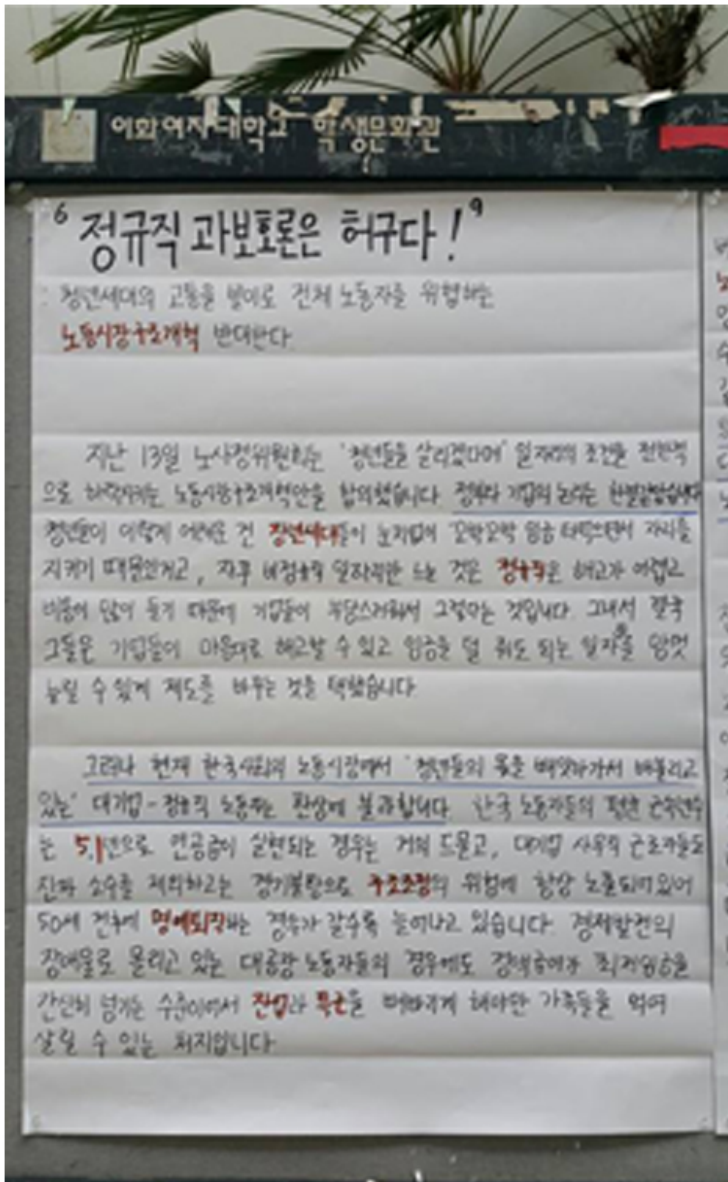 이화여자대학교 학생문화관
"정규직 과보호론은 허구다!"
: 청년세대의 고통을 볼모로 전체 노동자를 위협하는
노동시장구조개혁 반대한다.
지난 13일 노사정위원회는 "청년들을 살리겠다며" 일자리의 조건을 전반적
으로 하락시키는 노동시장구조개혁안을 합의했습니다. 정부와 기업의 논리는 한결같습니다
청년들이 이렇게 어려운 건 장년세대들이 눈치없이 꼬박꼬박 임금 타먹으면서 자리를
지키기 때문인거고, 자꾸 비정규직 일자리만 느는 것은 정규직은 해고가 어렵고
비용이 많이 들기 때문에 기업들이 부담스러워서 그렇다는 것입니다. 그래서 결국
그들은 기업들이 마음대로 해고할 수 있고 임금을 덜 줘도 되는 일자리를 맘껏
늘릴 수 있게 제도를 바꾸는 것을 택했습니다
그러나 현재 한국사회의 노동시장에서 "청년들의 몫을 빼앗아가서 배불리고
있는" 대기업-정규직 노동자는 환상에 불과합니다. 한국 노동자들의 평균 근속연수
는 5.1년으로 연공급이 실현되는 경우는 거의 드물고, 대기업 사무직 근로자들도
진짜 소수를 제외하고는 경기불황으로 구조조정의 위험에 항상 노출되어있어
50세 전후에 명예퇴직하는 경우가 갈수록 늘어나고 있습니다. 경제발전의
장애물로 몰리고 있는 대공장 노동자들의 경우에도 경력급여가 최저임금을
간신히 넘기는 수준이어서 잔업과 특근을 뼈빠지게 해야만 가족들을 먹여
살릴 수 있는 처지입니다